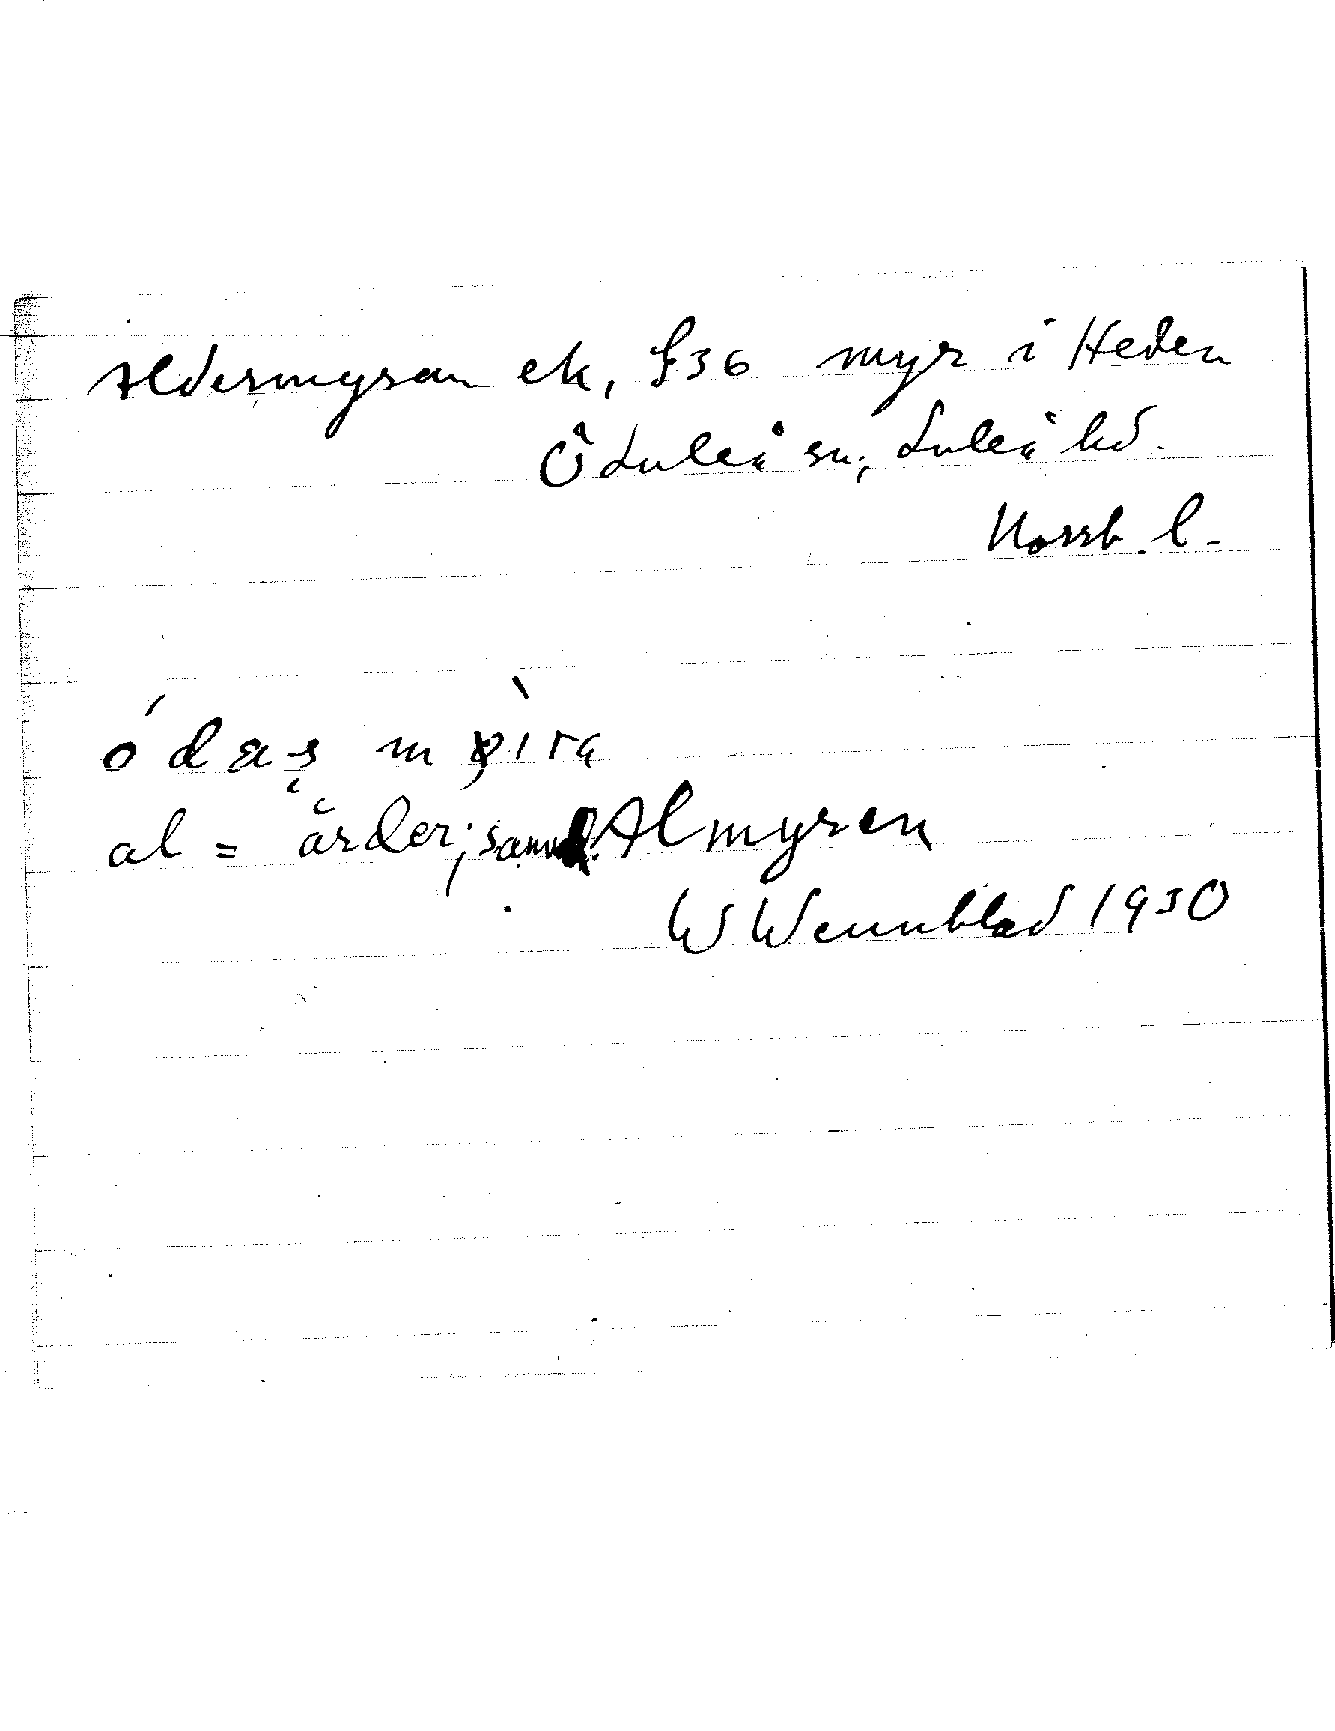 Aldermyran ek, §36 myr i Heden
Ö Luleå sn, Luleå hd.
Norrb. l.
al = årder; Almyren
W Wennblad 1930